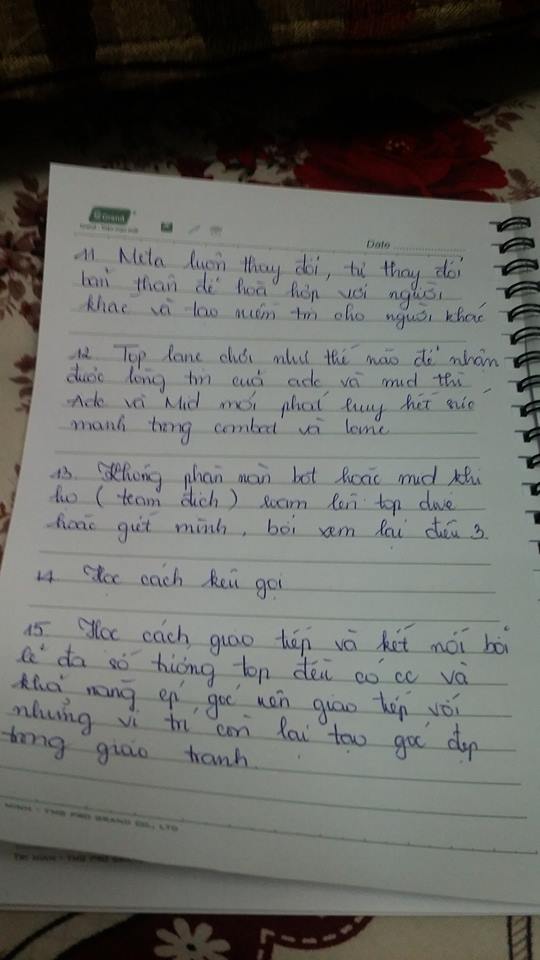 Grand
Date
11 Meta luôn thay đổi, tự thay đổi
bản thân để hoà hợp với người
khác và tạo niềm tin cho người khác
12 Top lane chơi như thế nào để nhận
được lòng tin của adc và mid thì
Adc và Mid mới phát huy hết sức
mạnh trong combat và lane
13. Không phàn nàn bot hoặc mid khi
họ (team địch) roam lên top dive
hoặc giết mình, bởi xem lại điều 3.
14 Học cách kêu gọi
15 Học cách giao tiếp và kết nối bởi
lẽ đa số tướng top đều có cc và
khả năng ép góc nên giao tiếp với
những vị trí còn lại tạo góc đẹp
trong giao tranh
MINH - THE PRO GRAND CO., LTD